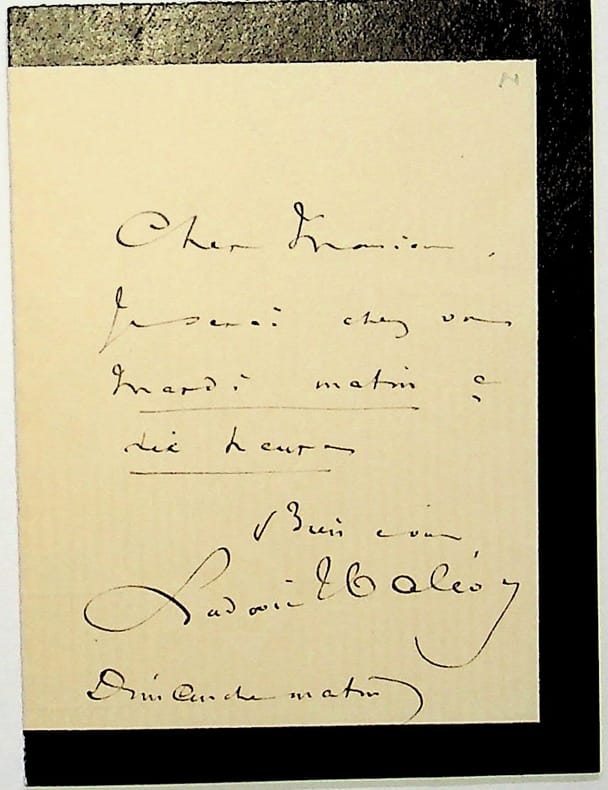 Cher Monsieur,
Je serai chez vous
Mardi matin à
dix heures
Bien à vous
Ludovic Halévy
Dimanche matin